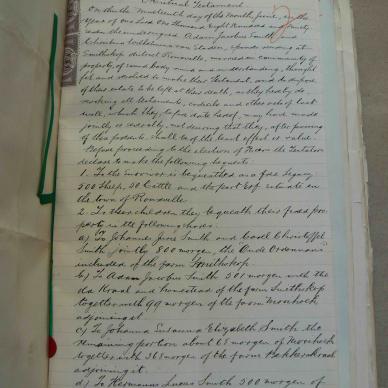 Mutual Testament
On this Nineteenth day of the Month June, in the
Year of our Lord One Thousand Eight Hundred and Ninety
the undersigned Adam Jacobus Smith and
Christina Wilhelmina van Staden, spouses residing at
Smithskop district Rouxville, married in community of
property, of sound body, mind and understanding, thought
fit and resolved to make their Testament, and to dispose
of their estate to be left at their death, as they hereby do
revoking all testaments, codicils and other acts of last
will, which they, before date hereof, may have made
jointly or severally, not desiring that they, after passing
of this presents shall be of the least effect or value.
Before proceeding to the election of Heirs the Testators
declare to make the following bequests:
1. To the survivor is bequeathed as a free legacy
500 Sheep, 50 Cattle and the part Erf situate in
the town of Rouxville.
2. To their children they bequeath their fixed pro-
perty in the following shares:
a) To Johannes Jurie Smith and Carel Christoffel
Smith jointly 800 morgen, the Oude Ordonnans
included of the farm Smithskop.
b) To Adam Jacobus Smith 501 morgen with the
Kraal and homestead of the farm Smithskop
together with 99 morgen of the farm
adjoining it.
c) To Johanna Susanna Elizabeth Smith the
remaining portion about 65 morgen of
together with 365 morgen of the farm Bakkerskraal
adjoining it.
d) To Hermanus Lucas Smith 500 morgen of